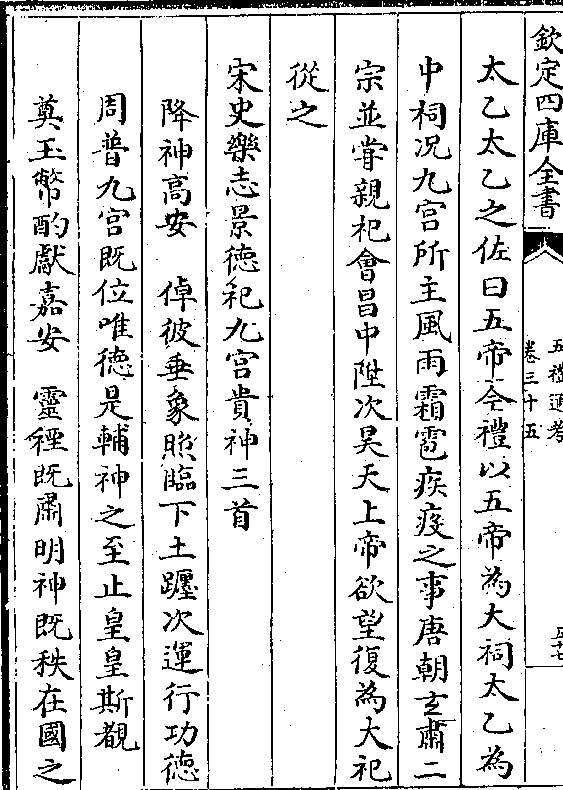 欽定四庫全書
五禮通考
卷三十五
五十七
太乙太乙之佐曰五帝今禮以五帝為大祠太乙為
中祠况九宫所主風雨霜雹疾疫之事唐朝玄肅二
宗並嘗親祀會昌中陞次昊天上帝欲望復為大祀
從之
宋史樂志景徳祀九宫貴神三首
降神高安　倬彼垂象照臨下土躔次運行功徳
周普九宫既位唯徳是輔神之至止皇皇斯覩
奠玉幣酌獻嘉安　靈禋既肅明神既秩在國之